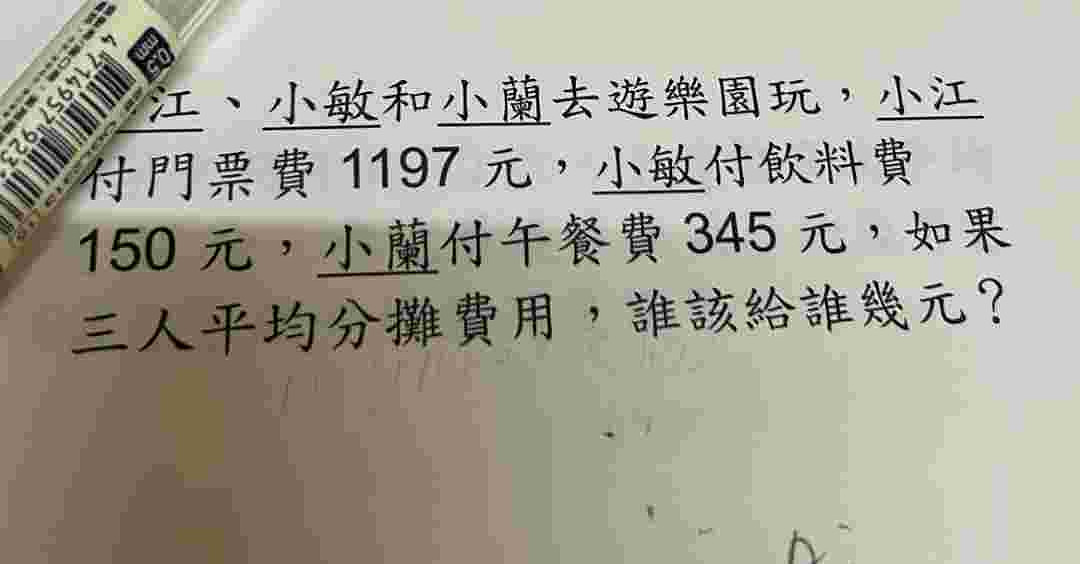 0.5 mm
4 714957 923
江、小敏和小蘭去遊樂園玩，小江
付門票費 1197 元，小敏付飲料費
150 元，小蘭付午餐費 345 元，如果
三人平均分攤費用，誰該給誰幾元？